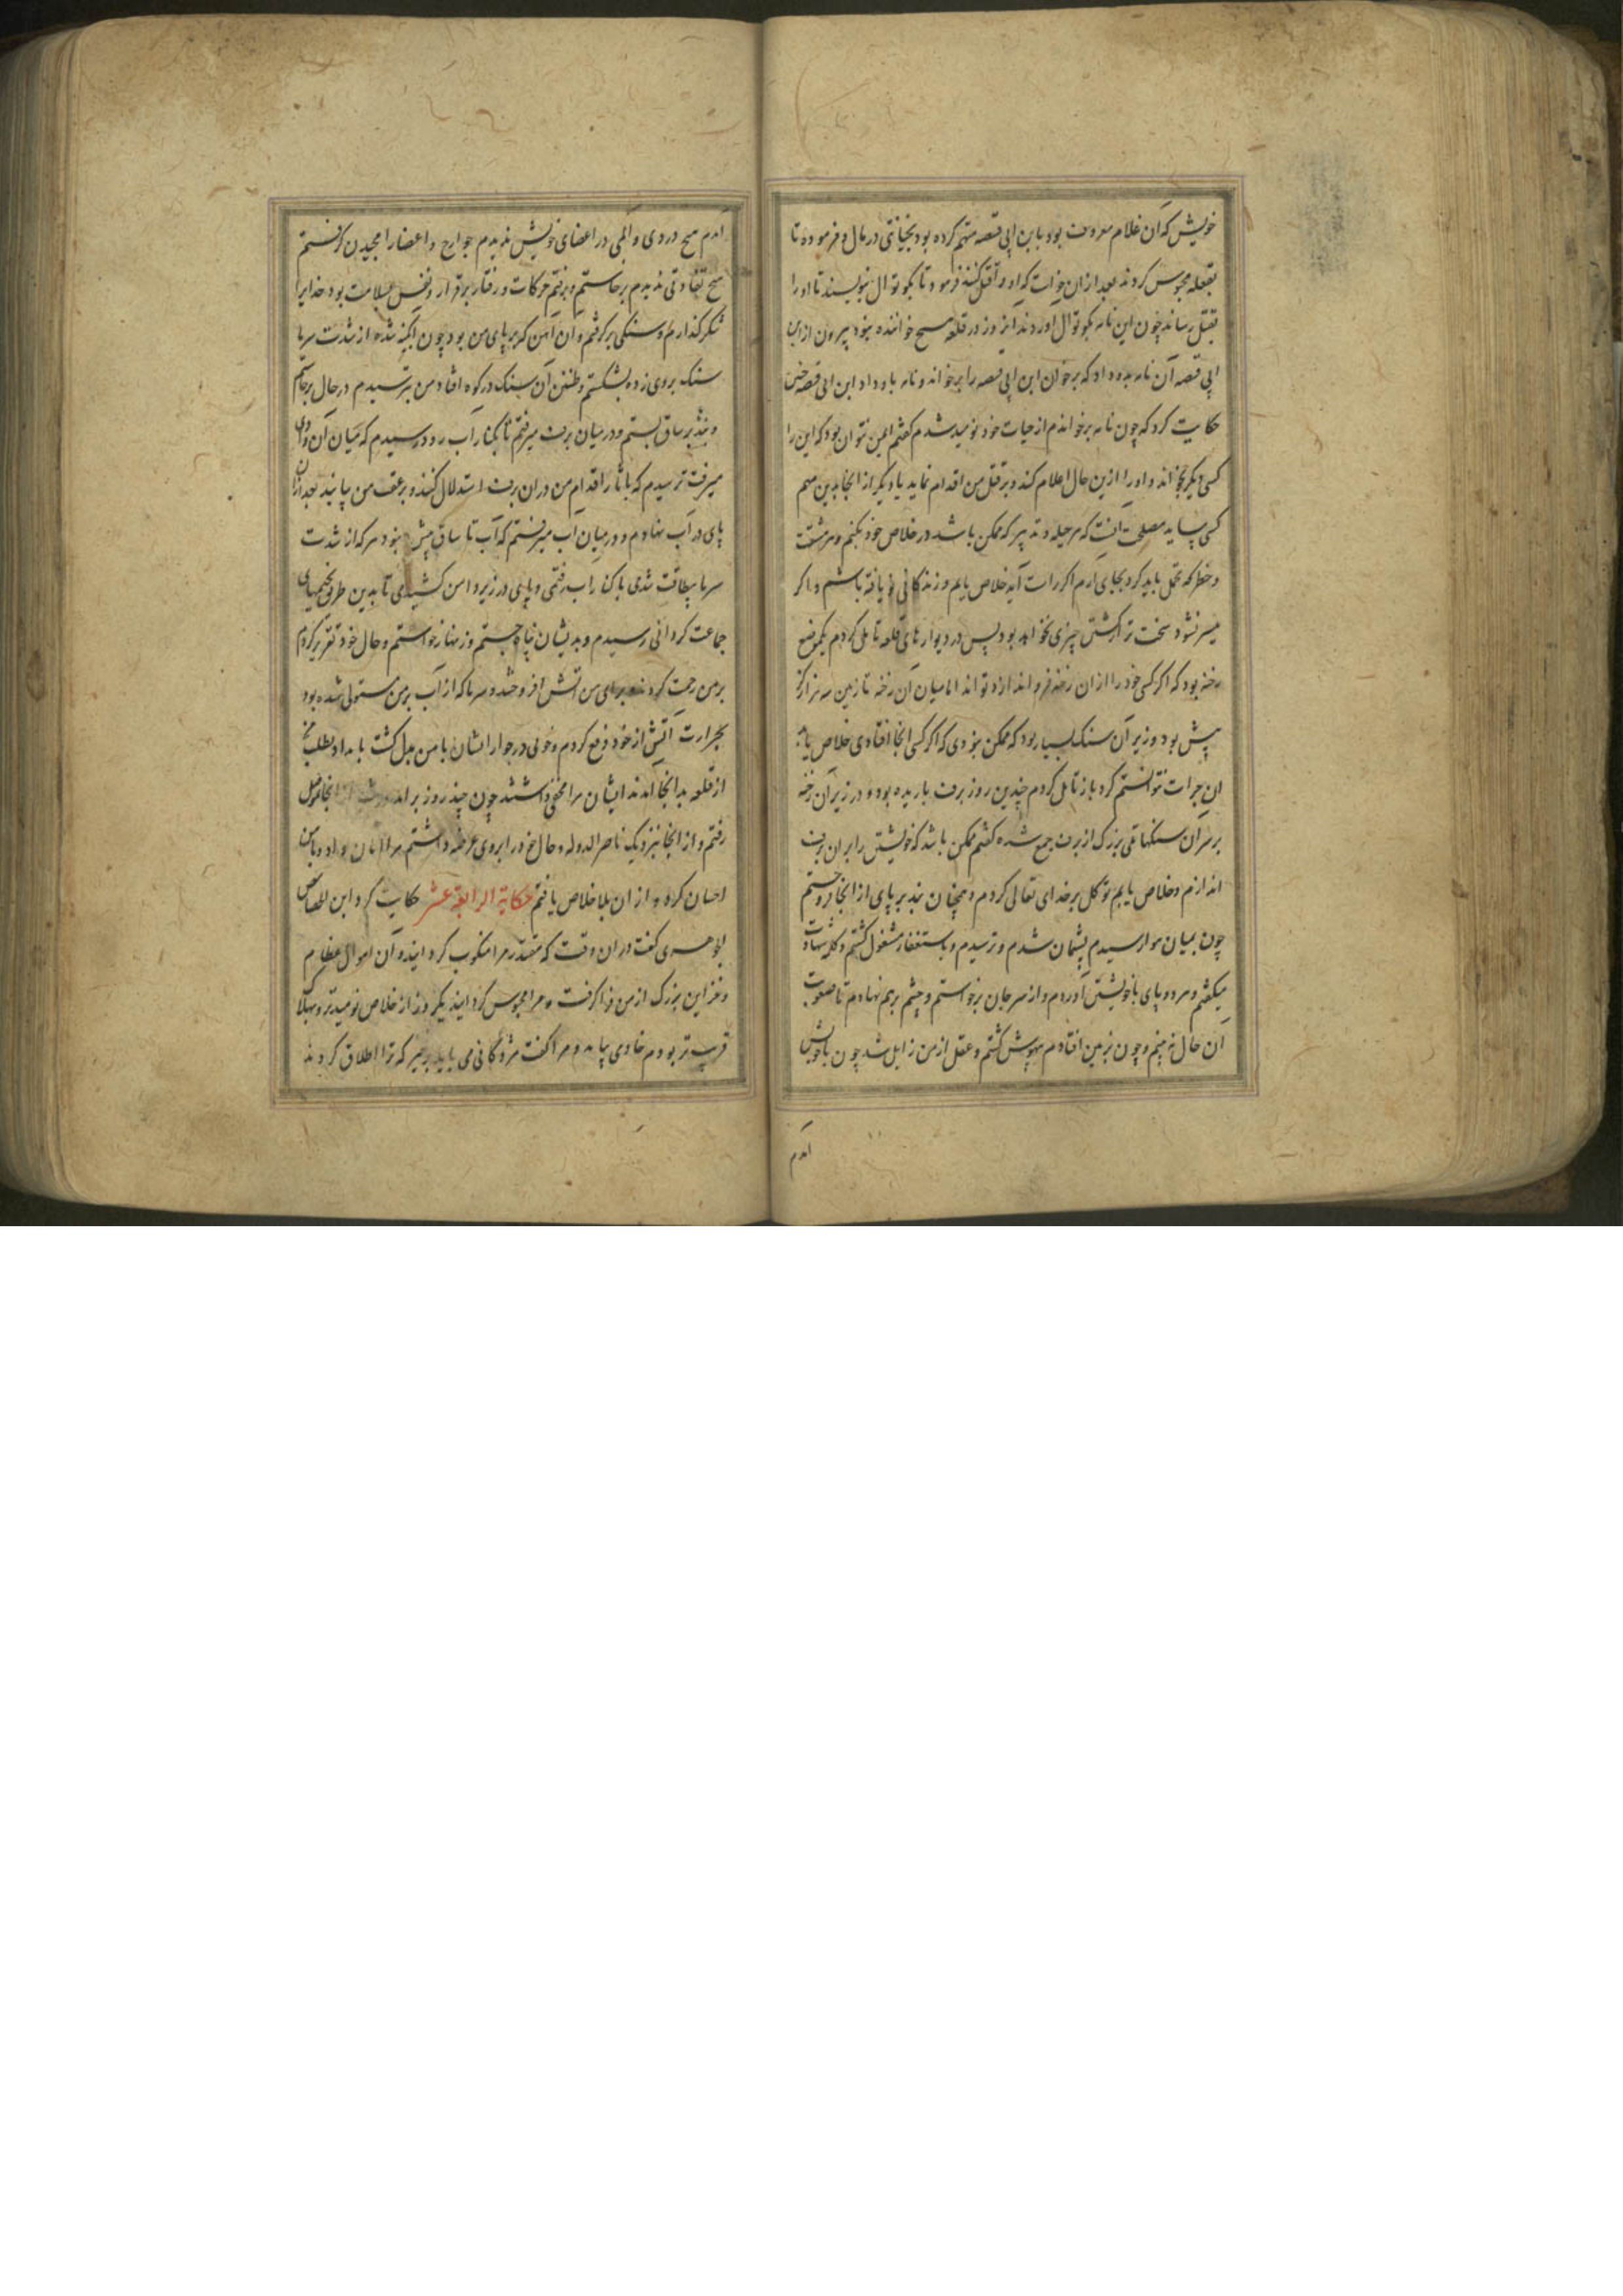 خویش که آن غلام معروف بود با ابن ابی قصه متهم کرده بود بخیانتی در مال و فرموده تا
بقلعه محبوس کردند بعد از ان خواست که او را قتل کند فرمود تا بکوتوال بنویسند تا او را
بقتل رساند چون این نامه بکوتوال اوردند انروز در قلعه هیچ خواننده نبود بیرون از ابن
ابی قصه آن نامه بدو داد که برخوان ابن ابی قصه را برخواند و نامه باو داد ابن ابی قصه چنین
حکایت کرد که چون نامه برخواندم از حیات خود نومید شدم گفتم ایمن نتوان بود که این را
کسی دیگر بخواند و او را ازین حال اعلام کند و بر قتل من اقدام نماید یا دیگر از انجا بدین مهم
کسی بیاید مصلحت آنست که هر حیله و تدبیر که ممکن باشد در خلاص خود بکنم و هر مشقت
و خطر که تحمل باید کرد بجای آرم اگر راست آید خلاص یابم و زندکانی نو یافته باشم و اگر
میسر نشود سخت تر از کشتن چیزی نخواهد بود پس در دیوارهای قلعه تامل کردم یکموضع
رخنه بود که اگر کسی خود را از ان رخنه فرو اندازد تواند اما میان آن رخنه تا زمین سه هزار گز
بیش بود و زیر آن سنک بسیار بود که ممکن نبودی که اگر کسی انجا افتادی خلاص یابد
این جرات نتوانستم کرد باز تامل کردم چندین روز برف باریده بود و در زیر آن رخنه
بر سر آن سنکهای بزرگ از برف جمع شده گفتم ممکن باشد که خویشتن را بر ان برف
اندازم و خلاص یابم توکل بر خدای تعالی کردم و همچنان بند بر پای از انجا فرو جستم
چون بمیان هوا رسیدم پشیمان شدم و ترسیدم و باستغفار مشغول کشتم و کلمه شهادت
میکفتم و هر دو پای با خویشتن آوردم و از سر جان برخواستم و چشم برهم نهادم تا صعوبت
آن حال نبینم و چون بزمین افتادم بیهوش کشتم و عقل از من زایل شد چون با خویش
آمدم
آمدم هیچ دردی و المی در اعضای خویش ندیدم جوارح و اعضا را مجیدن گرفتم
هیچ تفاوتی ندیدم برخاستم و برفتم حرکات و رفتار برقرار و نفس بسلامت بود خدایرا
شکر گذاردم و سنکی برگرفتم و آن آهن که بر پای من بود چون آبکینه شده از شدت سرما
سنک بروی زده بشکستم و طنین آن سنک در کوه افتاد من بترسیدم در حال برخاستم
و بند بر ساق بستم و در میان برف میرفتم تا بکنار آب رود رسیدم که میان آن وادی
میرفت ترسیدم که باثار اقدام من در ان برف استدلال کنند و بر عقب من بیایند بعد از ان
پای در آب نهادم و در میان آب میرفتم که آب تا ساق بیش نبود هر که از شدت
سرما بیطاقت شدی با کنار آب رفتمی و پای در زیر دامن کشیدمی تا بدین طریق بخیمهای
جماعت کردانی رسیدم و بدیشان پناه جستم و زینهار خواستم و حال خود تقریر کردم
بر من رحمت کردند و برای من آتش افروختند و سرما که از آب بر من مستولی شده بود
بحرارت آتش از خود دفع کردم و خوفی در جوار ایشان با من بدل گشت بامداد بطلب من
از قلعه بدانجا آمدند ایشان مرا مخفی داشتند چون چند روز برآمد انجا بموصل
رفتم و از انجا بنزدیک ناصر الدوله و حال خود را بر وی عرضه داشتم مرا امان داد و با من
احسان کرد و از ان بلا خلاص یافتم حکایة الرابعة عشر حکایت کرد ابن الجصاص
الجوهری گفت در ان وقت که مقتدر مرا منکوب کردانید و آن اموال عظایم
و خزاین بزرک از من فرا کرفت و مرا محبوس کردانید یکروز از خلاص نومیدتر و بهلاک
قریب تر بودم خادمی بیامد و مرا گفت مژدگانی می باید برخیز که ترا اطلاق کردند